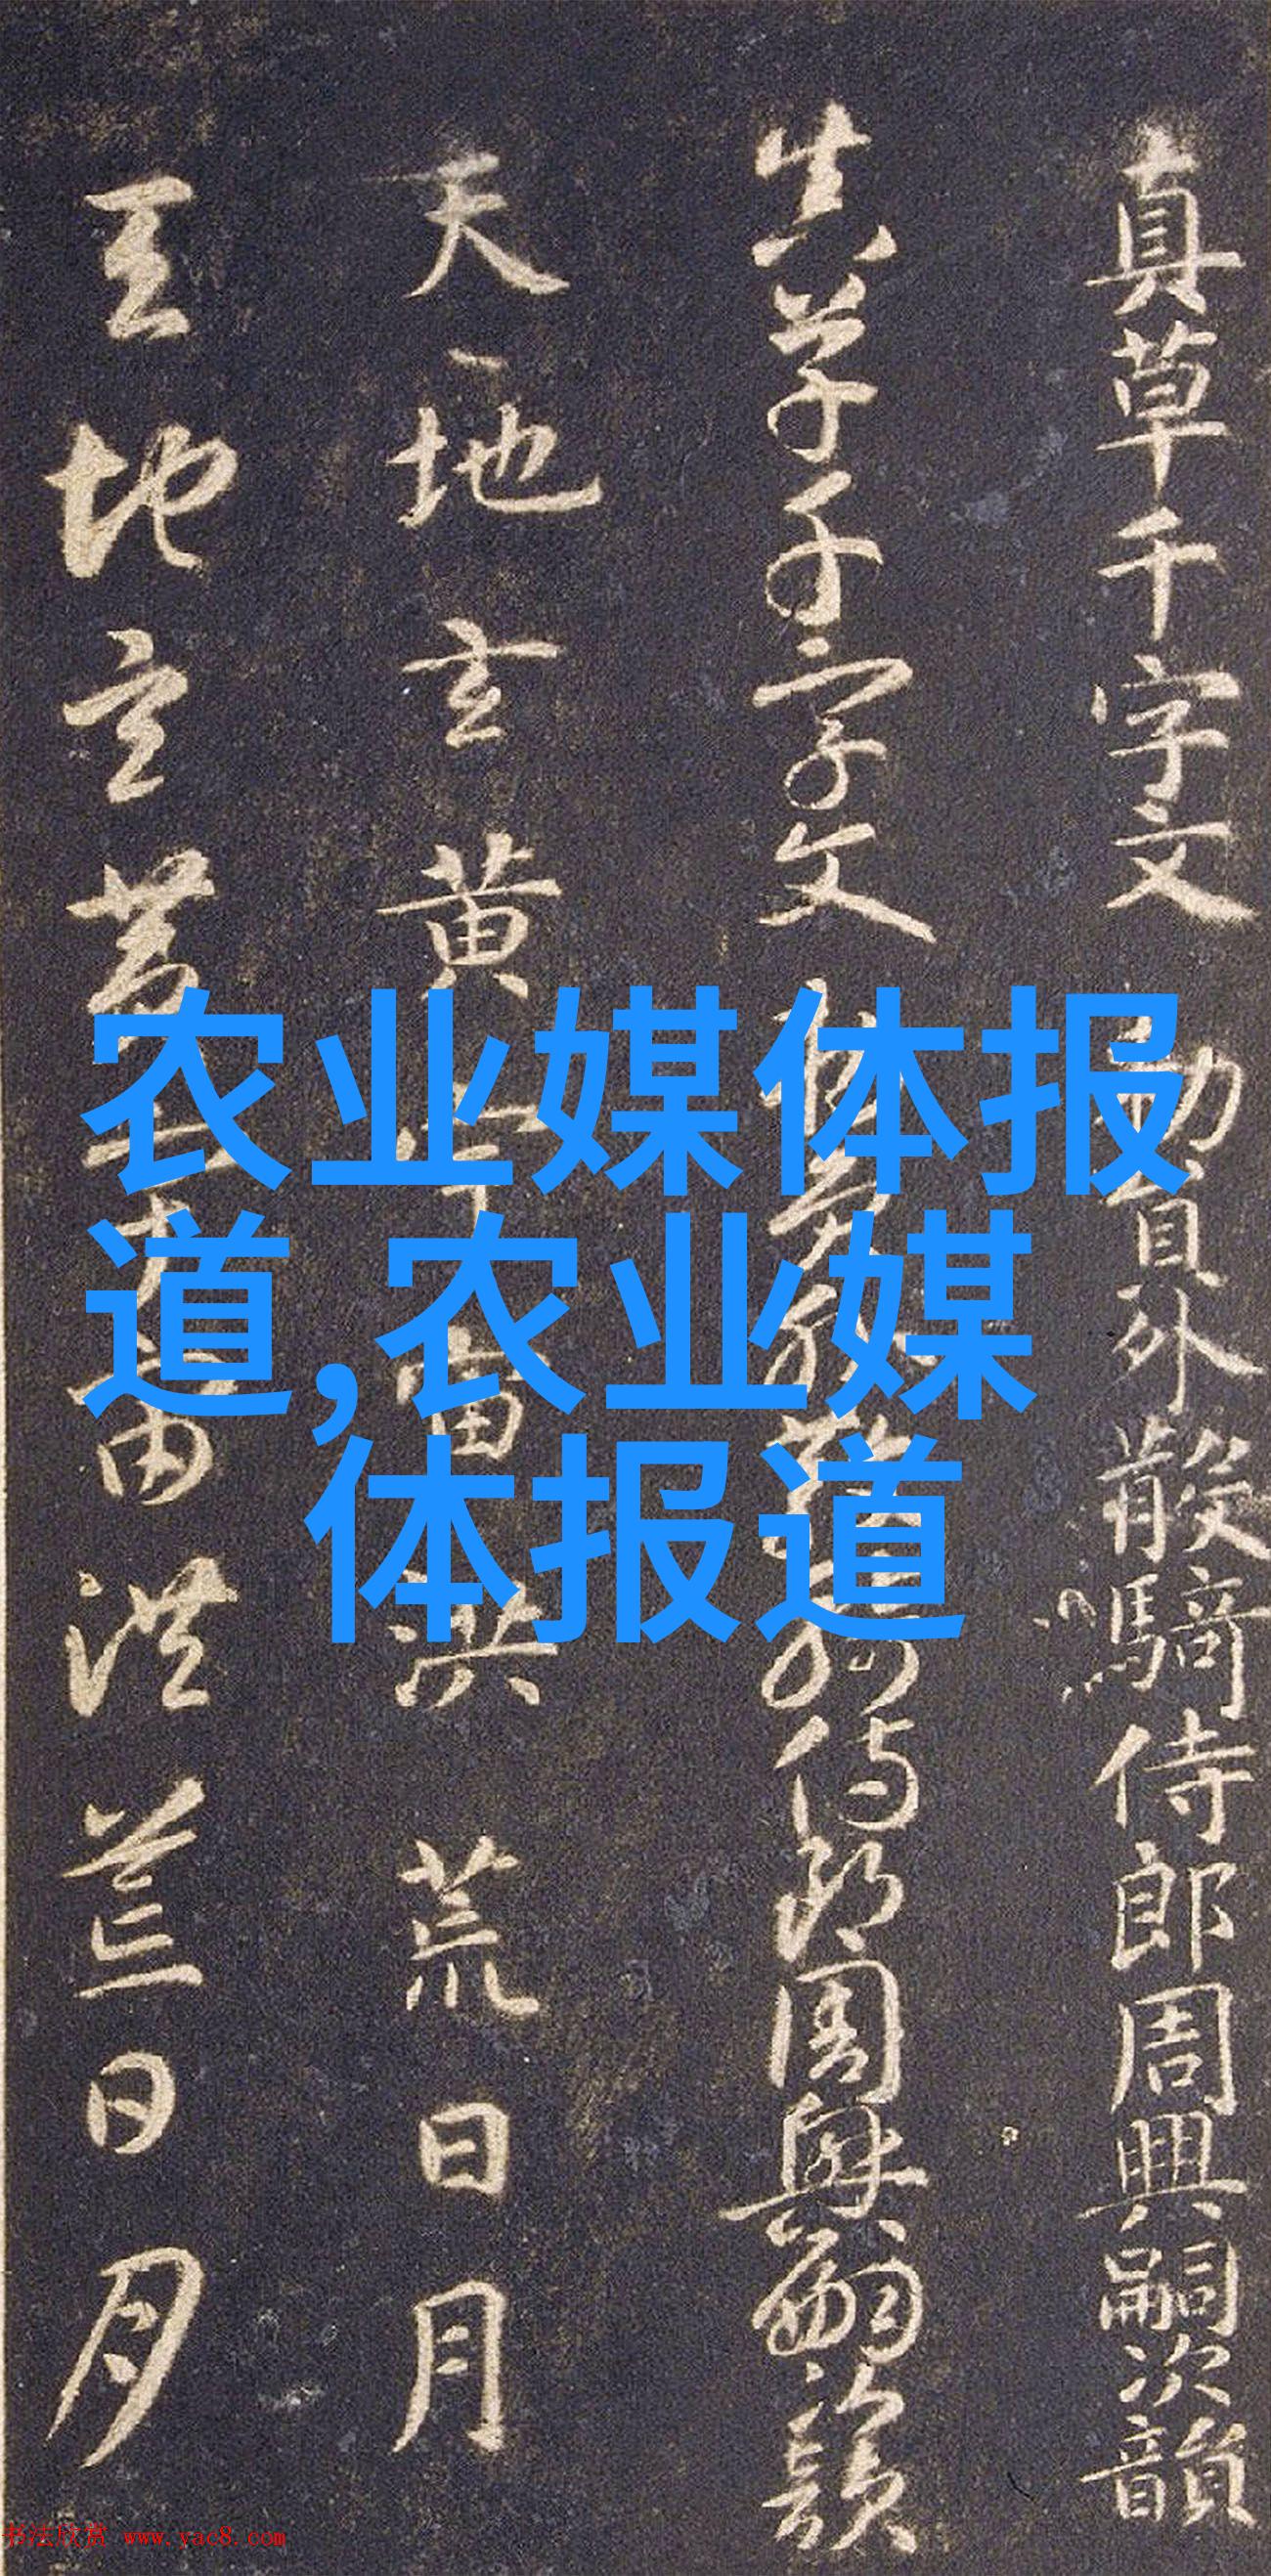 真草千字文 勑員外散騎侍郎周興嗣次韻
真草千字文 勑員外散騎侍郎周興嗣次韻
天地玄黄宇宙洪荒日月
天地玄黄宇宙洪荒日月
农业媒体报
道,农业媒
体报道
书法欣赏 www.yac8.com